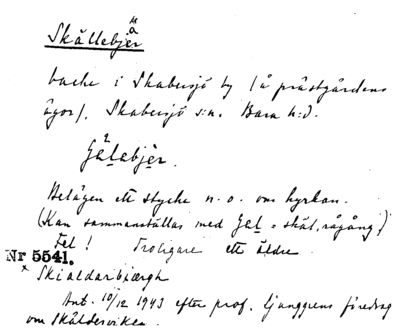 Skällebjer
backe i Skabersjö by (å prästgårdens
ägor). Skabersjö s:n. Bara h:d.
Gälabjèr.
Belägen ett stycke n. o. om kyrkan.
(Kan sammanställas med = skäl, rågång?)
Fel! Troligare ett äldre
Nr 5541.
*Skialdarbjærgh
Ant. 10/12 1943 efter prof. Ljunggrens föredrag
om Skälderviken.